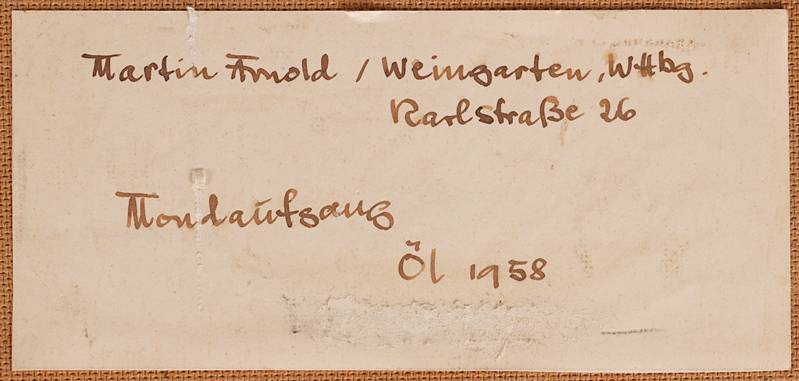 Martin Arnold / Weingarten, Wttbg.
Karlstraße 26
Mondaufgang
Öl 1958